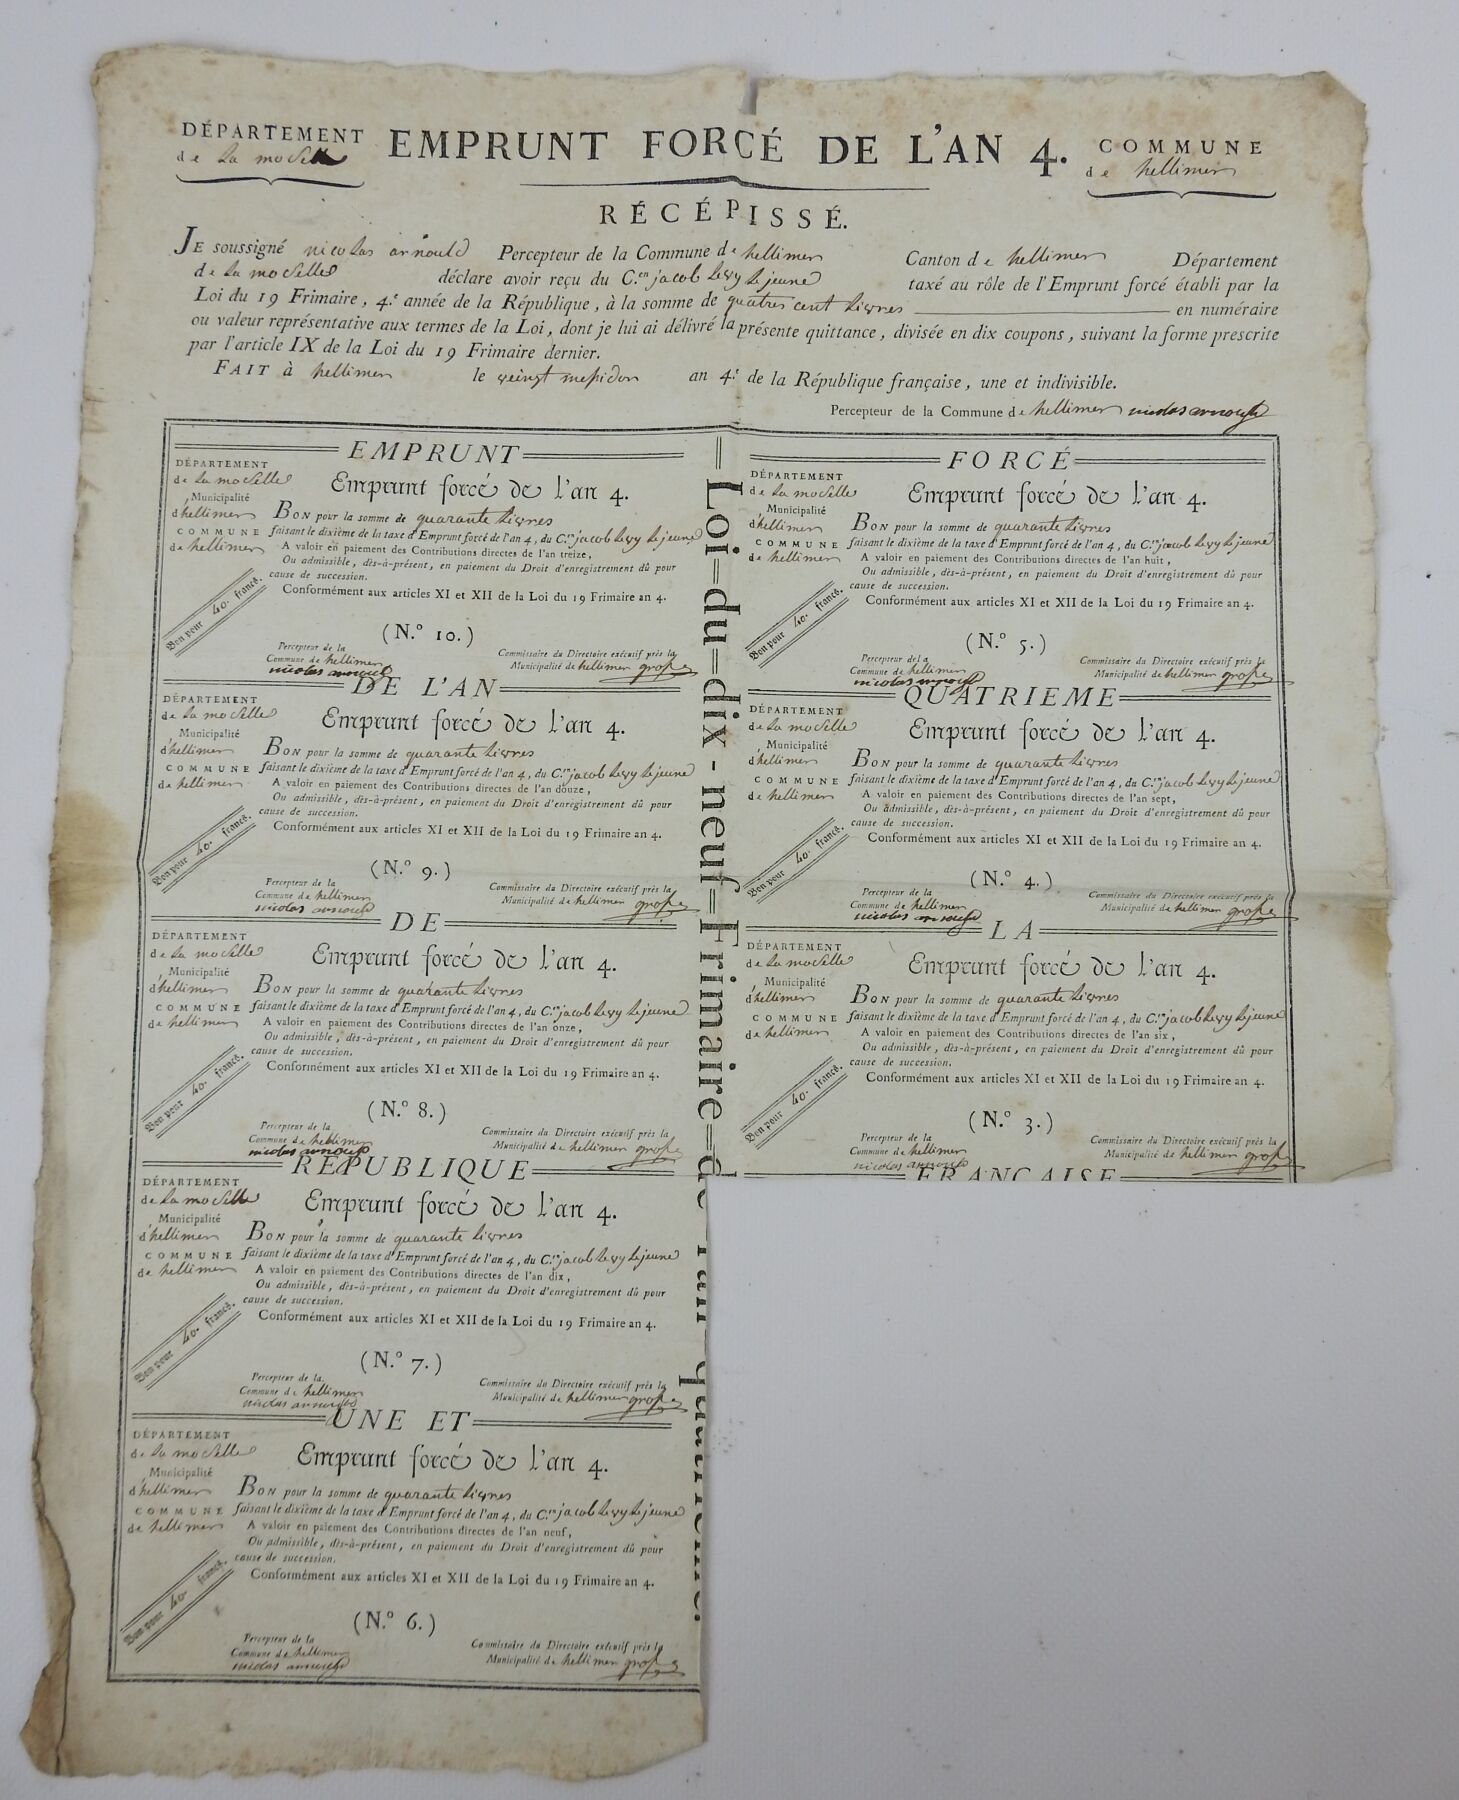 DÉPARTEMENT
de la moselle
EMPRUNT FORCÉ DE L'AN 4.
COMMUNE
de hellimer
RÉCÉPISSÉ.
JE soussigné nicolas arnould Percepteur de la Commune de hellimer Canton de hellimer Département
de la moselle déclare avoir reçu du C.en jacob levy le jeune taxé au rôle de l'Emprunt forcé établi par la
Loi du 19 Frimaire, 4.e année de la République, à la somme de quatres cent livres en numéraire
ou valeur représentative aux termes de la Loi, dont je lui ai délivré la présente quittance, divisée en dix coupons, suivant la forme prescrite
par l'article IX de la Loi du 19 Frimaire dernier.
FAIT à hellimer le veingt mesidor an 4.e de la République française, une et indivisible.
Percepteur de la Commune de hellimer nicolas arnould
EMPRUNT
DÉPARTEMENT
de la moselle
Municipalité
d'hellimer
COMMUNE
de hellimer
Emprunt forcé de l'an 4.
BON pour la somme de quarante livres
faisant le dixième de la taxe d'Emprunt forcé de l'an 4, du C.en jacob levy le jeune
A valoir en paiement des Contributions directes de l'an treize,
Ou admissible, dès-à-présent, en paiement du Droit d'enregistrement dû pour
cause de succession.
Conformément aux articles XI et XII de la Loi du 19 Frimaire an 4.
Bon pour 40. francs.
(N.o 10.)
Percepteur de la
Commune de hellimer
nicolas arnould
Commissaire du Directoire exécutif près la
Municipalité de hellimer
DE L'AN
DÉPARTEMENT
de la moselle
Municipalité
d'hellimer
COMMUNE
de hellimer
Emprunt forcé de l'an 4.
BON pour la somme de quarante livres
faisant le dixième de la taxe d'Emprunt forcé de l'an 4, du C.en jacob levy le jeune
A valoir en paiement des Contributions directes de l'an douze,
Ou admissible, dès-à-présent, en paiement du Droit d'enregistrement dû pour
cause de succession.
Conformément aux articles XI et XII de la Loi du 19 Frimaire an 4.
Bon pour 40. francs.
(N.o 9.)
Percepteur de la
Commune de hellimer
nicolas arnould
Commissaire du Directoire exécutif près la
Municipalité de hellimer
DE
DÉPARTEMENT
de la moselle
Municipalité
d'hellimer
COMMUNE
de hellimer
Emprunt forcé de l'an 4.
BON pour la somme de quarante livres
faisant le dixième de la taxe d'Emprunt forcé de l'an 4, du C.en jacob levy le jeune
A valoir en paiement des Contributions directes de l'an onze,
Ou admissible, dès-à-présent, en paiement du Droit d'enregistrement dû pour
cause de succession.
Conformément aux articles XI et XII de la Loi du 19 Frimaire an 4.
Bon pour 40. francs.
(N.o 8.)
Percepteur de la
Commune de hellimer
nicolas arnould
Commissaire du Directoire exécutif près la
Municipalité de hellimer
RÉPUBLIQUE
DÉPARTEMENT
de la moselle
Municipalité
d'hellimer
COMMUNE
de hellimer
Emprunt forcé de l'an 4.
BON pour la somme de quarante livres
faisant le dixième de la taxe d'Emprunt forcé de l'an 4, du C.en jacob levy le jeune
A valoir en paiement des Contributions directes de l'an dix,
Ou admissible, dès-à-présent, en paiement du Droit d'enregistrement dû pour
cause de succession.
Conformément aux articles XI et XII de la Loi du 19 Frimaire an 4.
Bon pour 40. francs.
(N.o 7.)
Percepteur de la
Commune de hellimer
nicolas arnould
Commissaire du Directoire exécutif près la
Municipalité de hellimer
UNE ET
DÉPARTEMENT
de la moselle
Municipalité
d'hellimer
COMMUNE
de hellimer
Emprunt forcé de l'an 4.
BON pour la somme de quarante livres
faisant le dixième de la taxe d'Emprunt forcé de l'an 4, du C.en jacob levy le jeune
A valoir en paiement des Contributions directes de l'an neuf,
Ou admissible, dès-à-présent, en paiement du Droit d'enregistrement dû pour
cause de succession.
Conformément aux articles XI et XII de la Loi du 19 Frimaire an 4.
Bon pour 40. francs.
(N.o 6.)
Percepteur de la
Commune de hellimer
nicolas arnould
Commissaire du Directoire exécutif près la
Municipalité de hellimer
Loi du dix-neuf Frimaire de l'an quatrième.
FORCÉ
DÉPARTEMENT
de la moselle
Municipalité
d'hellimer
COMMUNE
de hellimer
Emprunt forcé de l'an 4.
BON pour la somme de quarante livres
faisant le dixième de la taxe d'Emprunt forcé de l'an 4, du C.en jacob levy le jeune
A valoir en paiement des Contributions directes de l'an huit,
Ou admissible, dès-à-présent, en paiement du Droit d'enregistrement dû pour
cause de succession.
Conformément aux articles XI et XII de la Loi du 19 Frimaire an 4.
Bon pour 40. francs.
(N.o 5.)
Percepteur de la
Commune de hellimer
nicolas arnould
Commissaire du Directoire exécutif près la
Municipalité de hellimer
QUATRIEME
DÉPARTEMENT
de la moselle
Municipalité
d'hellimer
COMMUNE
de hellimer
Emprunt forcé de l'an 4.
BON pour la somme de quarante livres
faisant le dixième de la taxe d'Emprunt forcé de l'an 4, du C.en jacob levy le jeune
A valoir en paiement des Contributions directes de l'an sept,
Ou admissible, dès-à-présent, en paiement du Droit d'enregistrement dû pour
cause de succession.
Conformément aux articles XI et XII de la Loi du 19 Frimaire an 4.
Bon pour 40. francs.
(N.o 4.)
Percepteur de la
Commune de hellimer
nicolas arnould
Commissaire du Directoire exécutif près la
Municipalité de hellimer
LA
DÉPARTEMENT
de la moselle
Municipalité
d'hellimer
COMMUNE
de hellimer
Emprunt forcé de l'an 4.
BON pour la somme de quarante livres
faisant le dixième de la taxe d'Emprunt forcé de l'an 4, du C.en jacob levy le jeune
A valoir en paiement des Contributions directes de l'an six,
Ou admissible, dès-à-présent, en paiement du Droit d'enregistrement dû pour
cause de succession.
Conformément aux articles XI et XII de la Loi du 19 Frimaire an 4.
Bon pour 40. francs.
(N.o 3.)
Percepteur de la
Commune de hellimer
nicolas arnould
Commissaire du Directoire exécutif près la
Municipalité de hellimer
FRANÇAISE